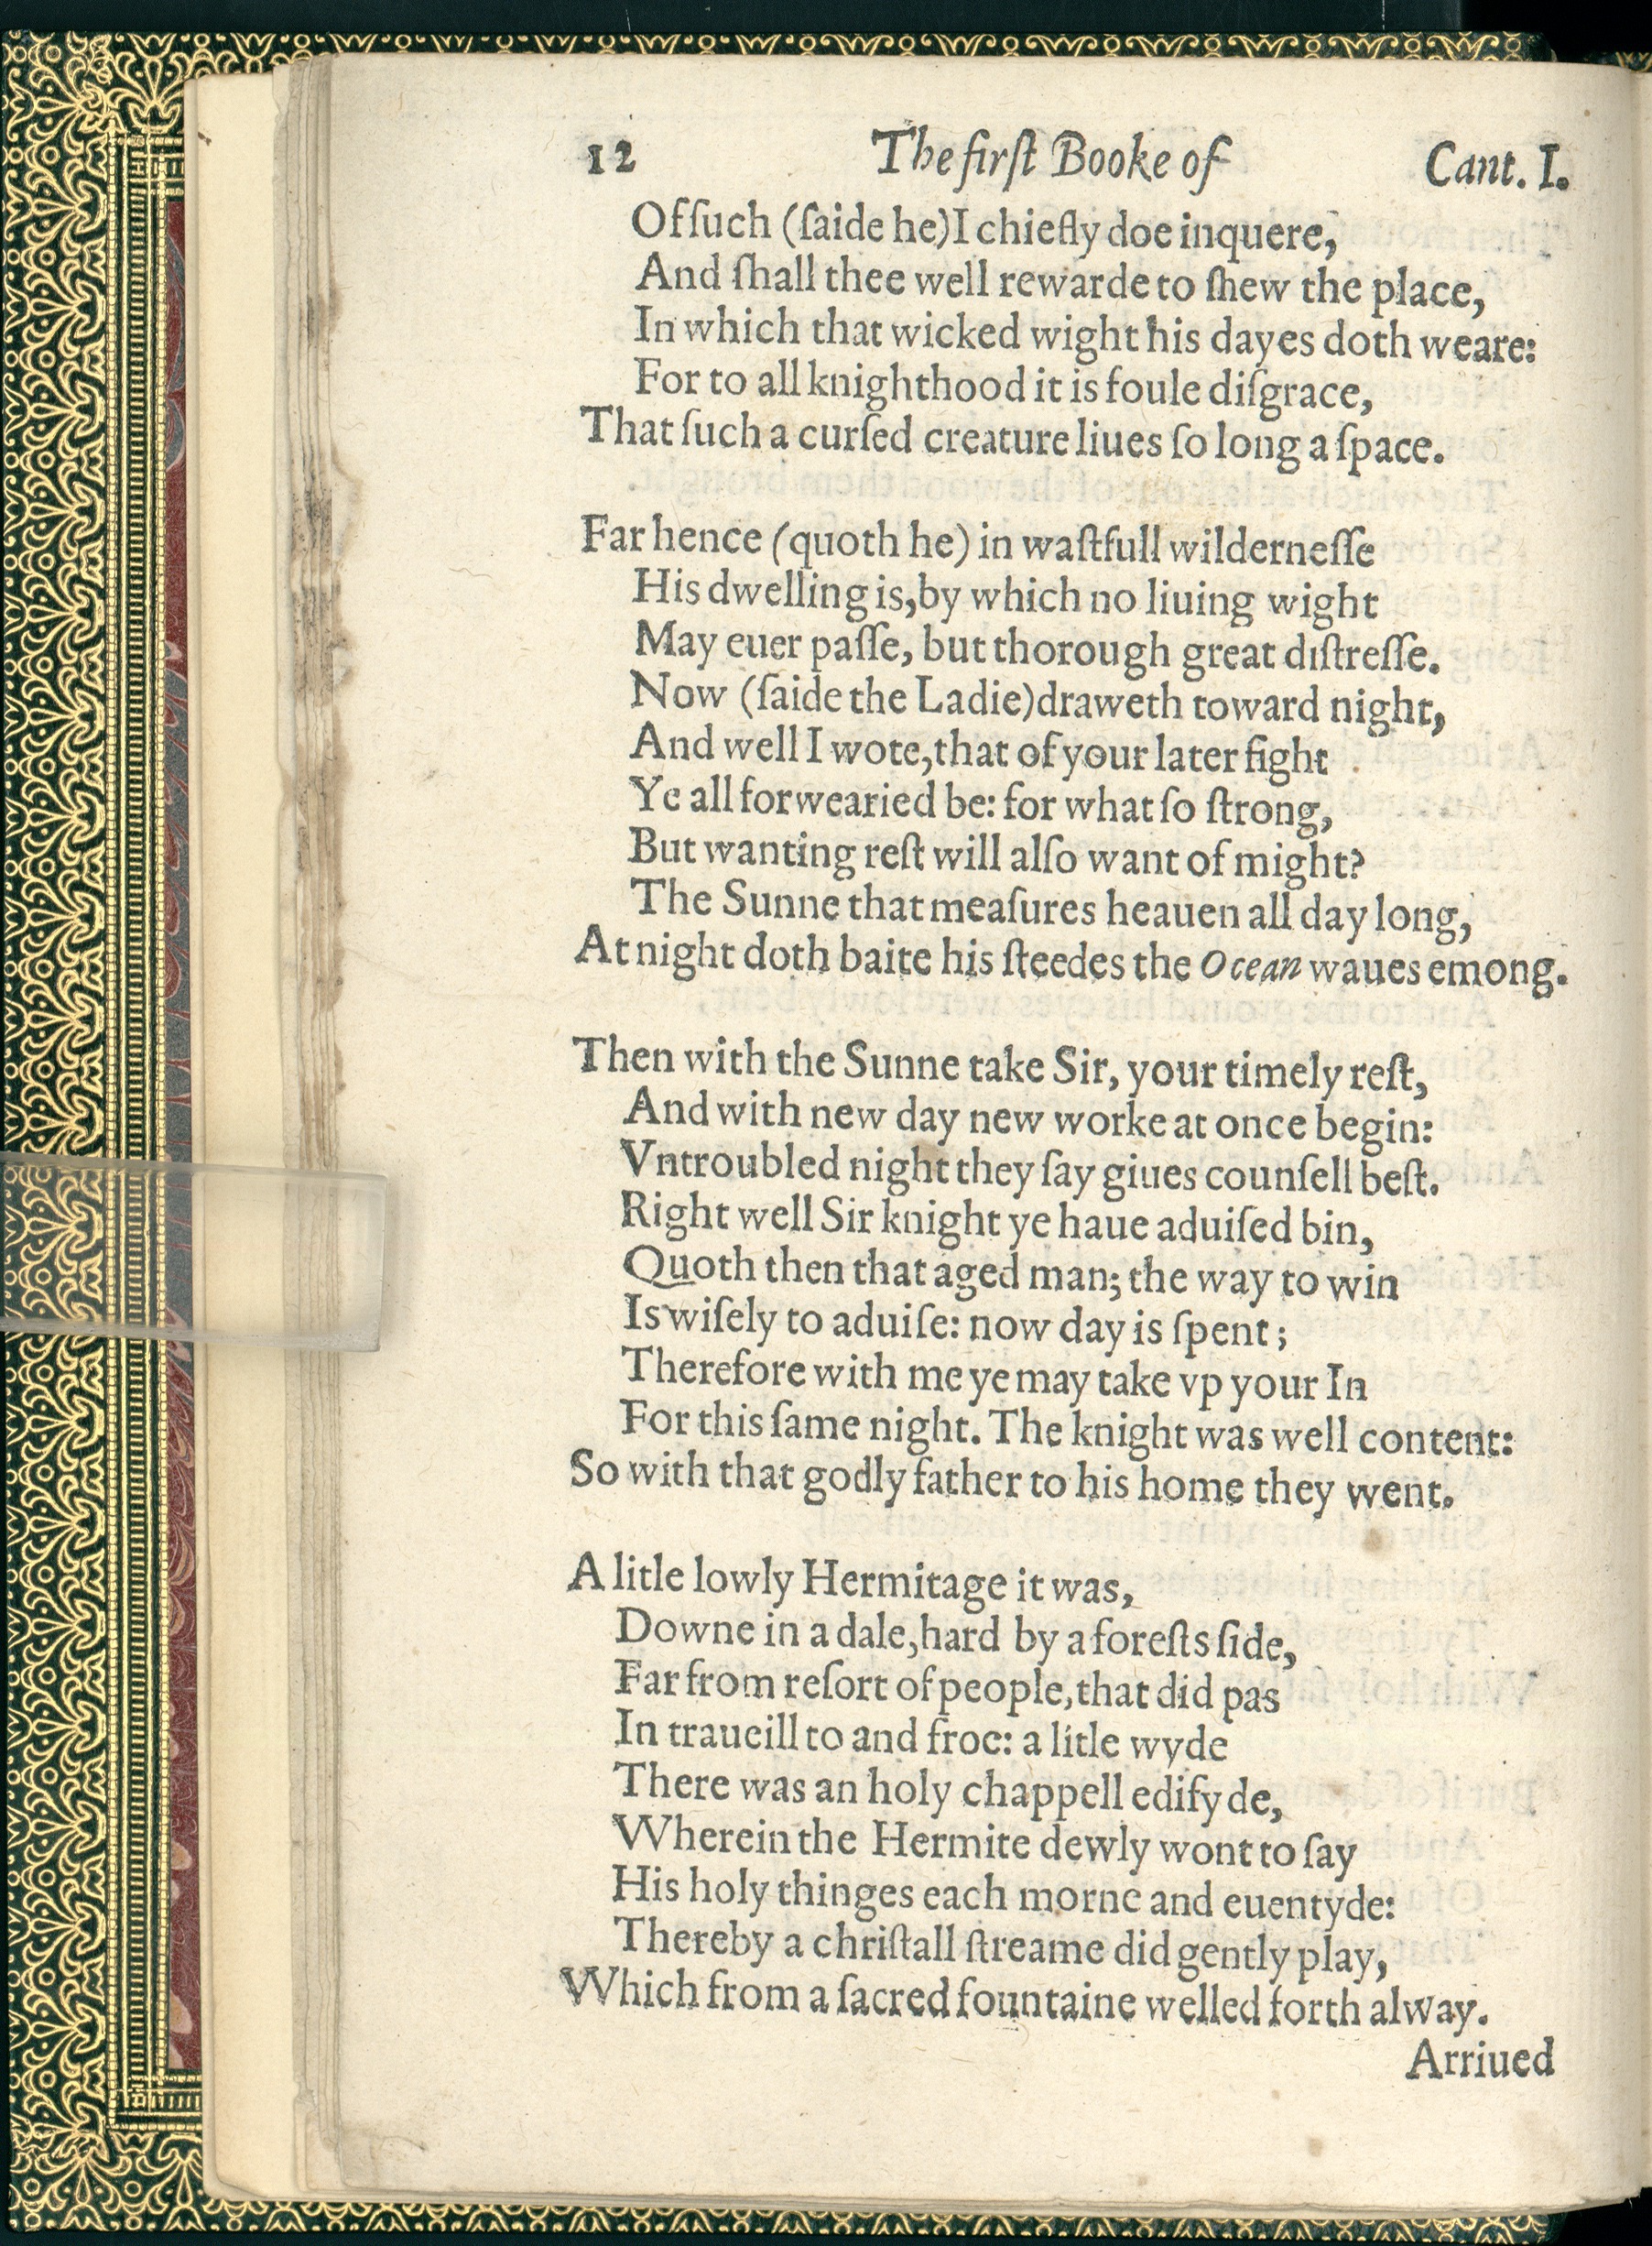 12 The firſt Booke of Cant. I.
Of ſuch (ſaide he) I chiefly doe inquere,
And ſhall thee well rewarde to ſhew the place,
In which that wicked wight his dayes doth weare:
For to all knighthood it is foule diſgrace,
That ſuch a curſed creature liues ſo long a ſpace.
Far hence (quoth he) in waſtfull wilderneſſe
His dwelling is, by which no liuing wight
May euer paſſe, but thorough great diſtreſſe.
Now (ſaide the Ladie) draweth toward night,
And well I wote, that of your later fight
Ye all forwearied be: for what ſo ſtrong,
But wanting reſt will alſo want of might?
The Sunne that meaſures heauen all day long,
At night doth baite his ſteedes the Ocean waues emong.
Then with the Sunne take Sir, your timely reſt,
And with new day new worke at once begin:
Vntroubled night they ſay giues counſell beſt.
Right well Sir knight ye haue aduiſed bin,
Quoth then that aged man; the way to win
Is wiſely to aduiſe: now day is ſpent;
Therefore with me ye may take vp your In
For this ſame night. The knight was well content:
So with that godly father to his home they went.
A litle lowly Hermitage it was,
Downe in a dale, hard by a foreſts ſide,
Far from reſort of people, that did pas
In traueill to and froe: a litle wyde
There was an holy chappell edifyde,
Wherein the Hermite dewly wont to ſay
His holy thinges each morne and euentyde:
Thereby a chriſtall ſtreame did gently play,
Which from a ſacred fountaine welled forth alway.
Arriued